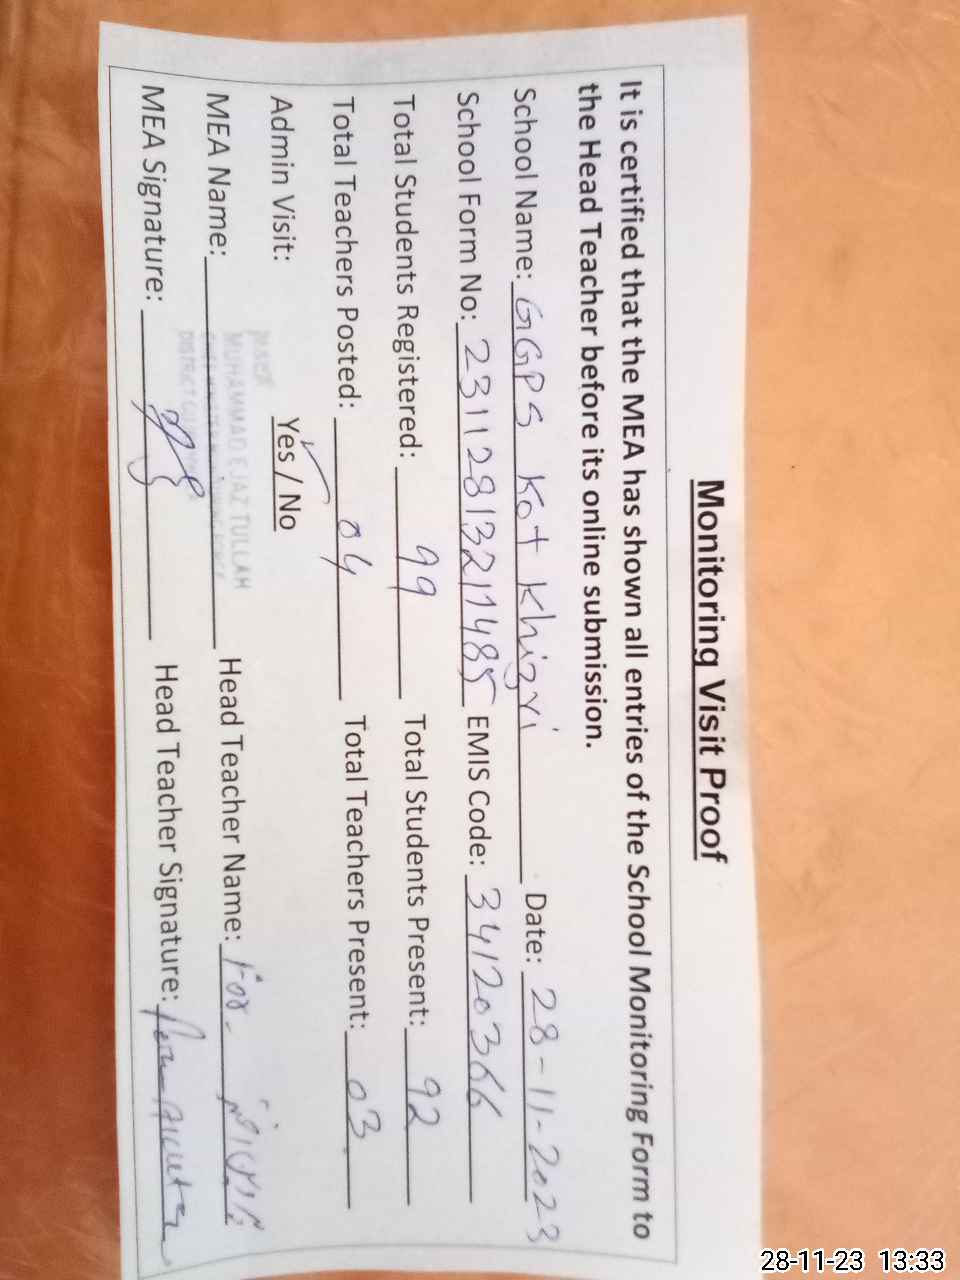 Monitoring Visit Proof
It is certified that the MEA has shown all entries of the School Monitoring Form to
the Head Teacher before its online submission.
School Name: GGPS Kot Khizri Date: 28-11-2023
School Form No: 231128132171485 EMIS Code: 34120366
Total Students Registered: 99 Total Students Present: 92
Total Teachers Posted: 04 Total Teachers Present: 03
Admin Visit: Yes / No
MEA Name: MUHAMMAD EJAZ TULLAH Head Teacher Name: For
MEA Signature: Head Teacher Signature:
28-11-23 13:33